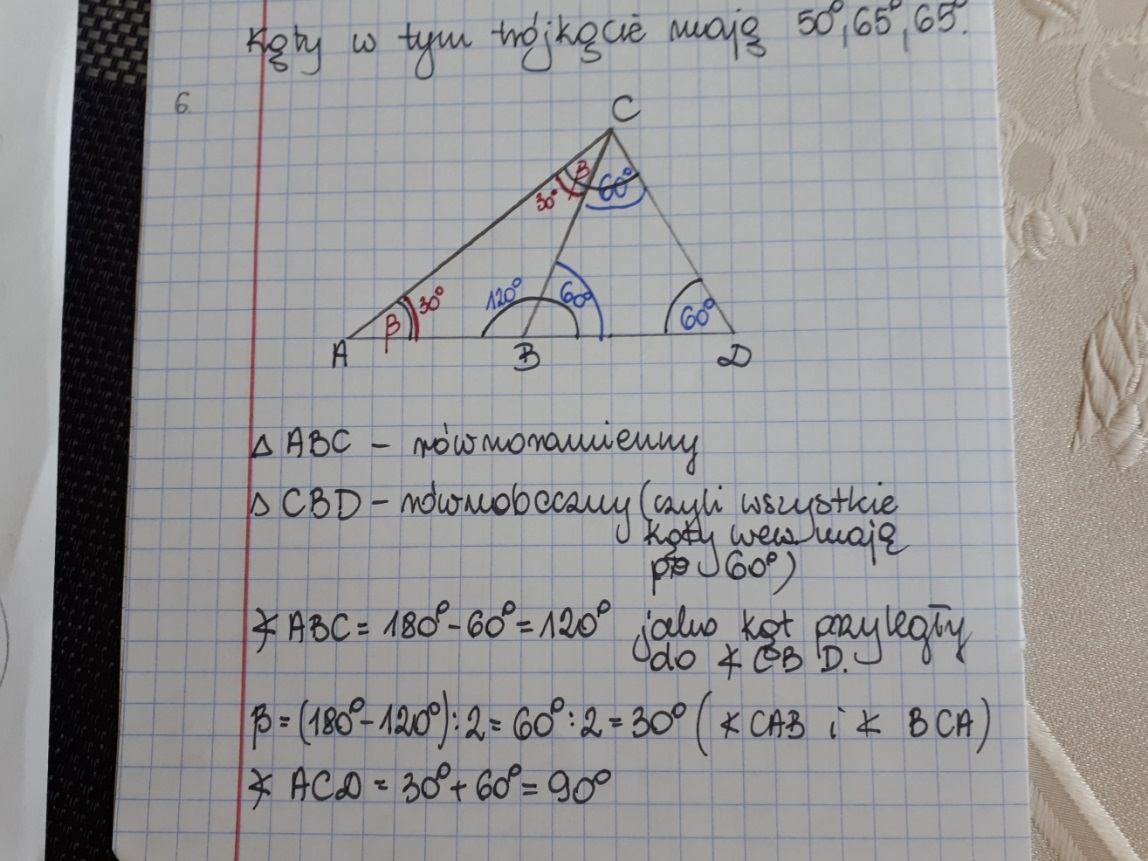 Kąty w tym trójkącie mają 50°, 65°, 65°.
6.
C
β
60°
30°
30°
120°
60°
60°
β
A
B
D
△ ABC - równoramienny
△ CBD - równoboczny (czyli wszystkie
kąty wew. mają
po 60°)
∡ ABC = 180° - 60° = 120° jako kąt przyległy
do ∡ CBD.
β = (180° - 120°) : 2 = 60° : 2 = 30° (∡ CAB i ∡ BCA)
∡ ACD = 30° + 60° = 90°